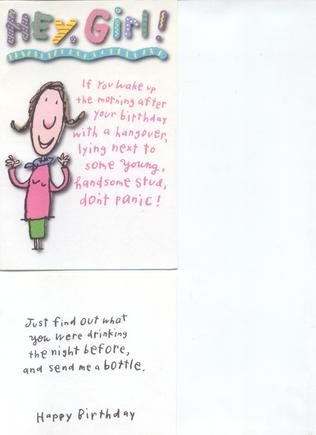 HEY, Girl!
If you wake up
the morning after
your birthday
with a hangover,
lying next to
some young,
handsome stud,
don't panic!
Just find out what
you were drinking
the night before,
and send me a bottle.
Happy Birthday